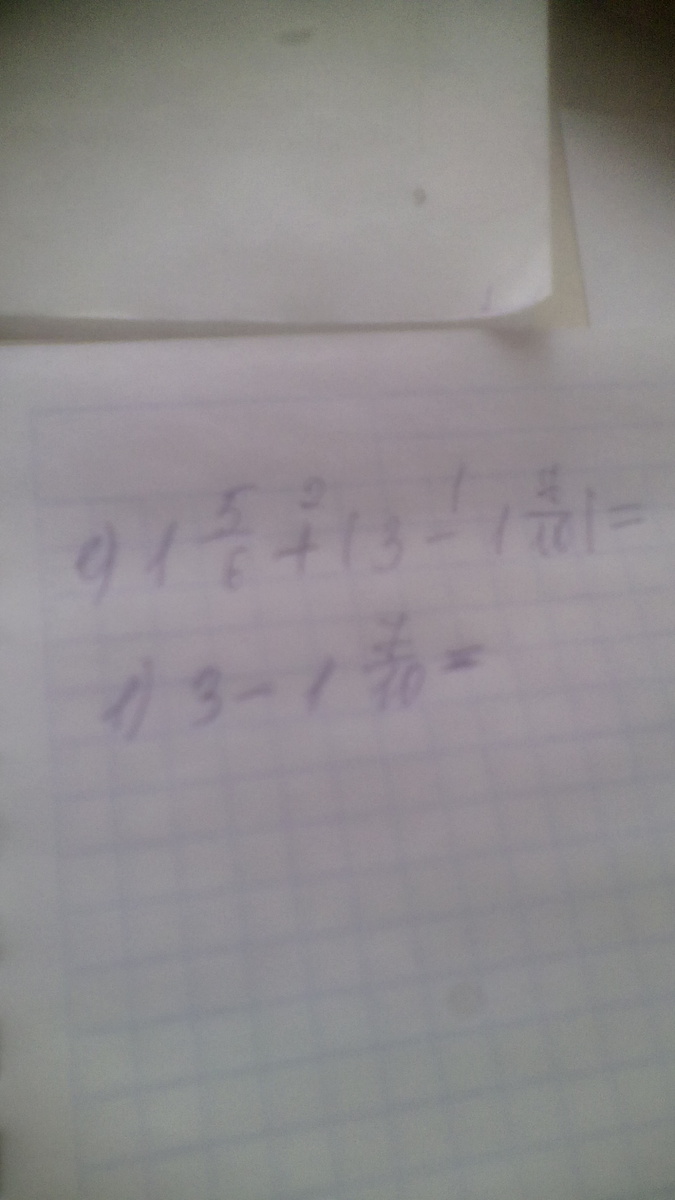 е) 1 5/6 + (3 - 1 7/10) =
1) 3 - 1 7/10 =